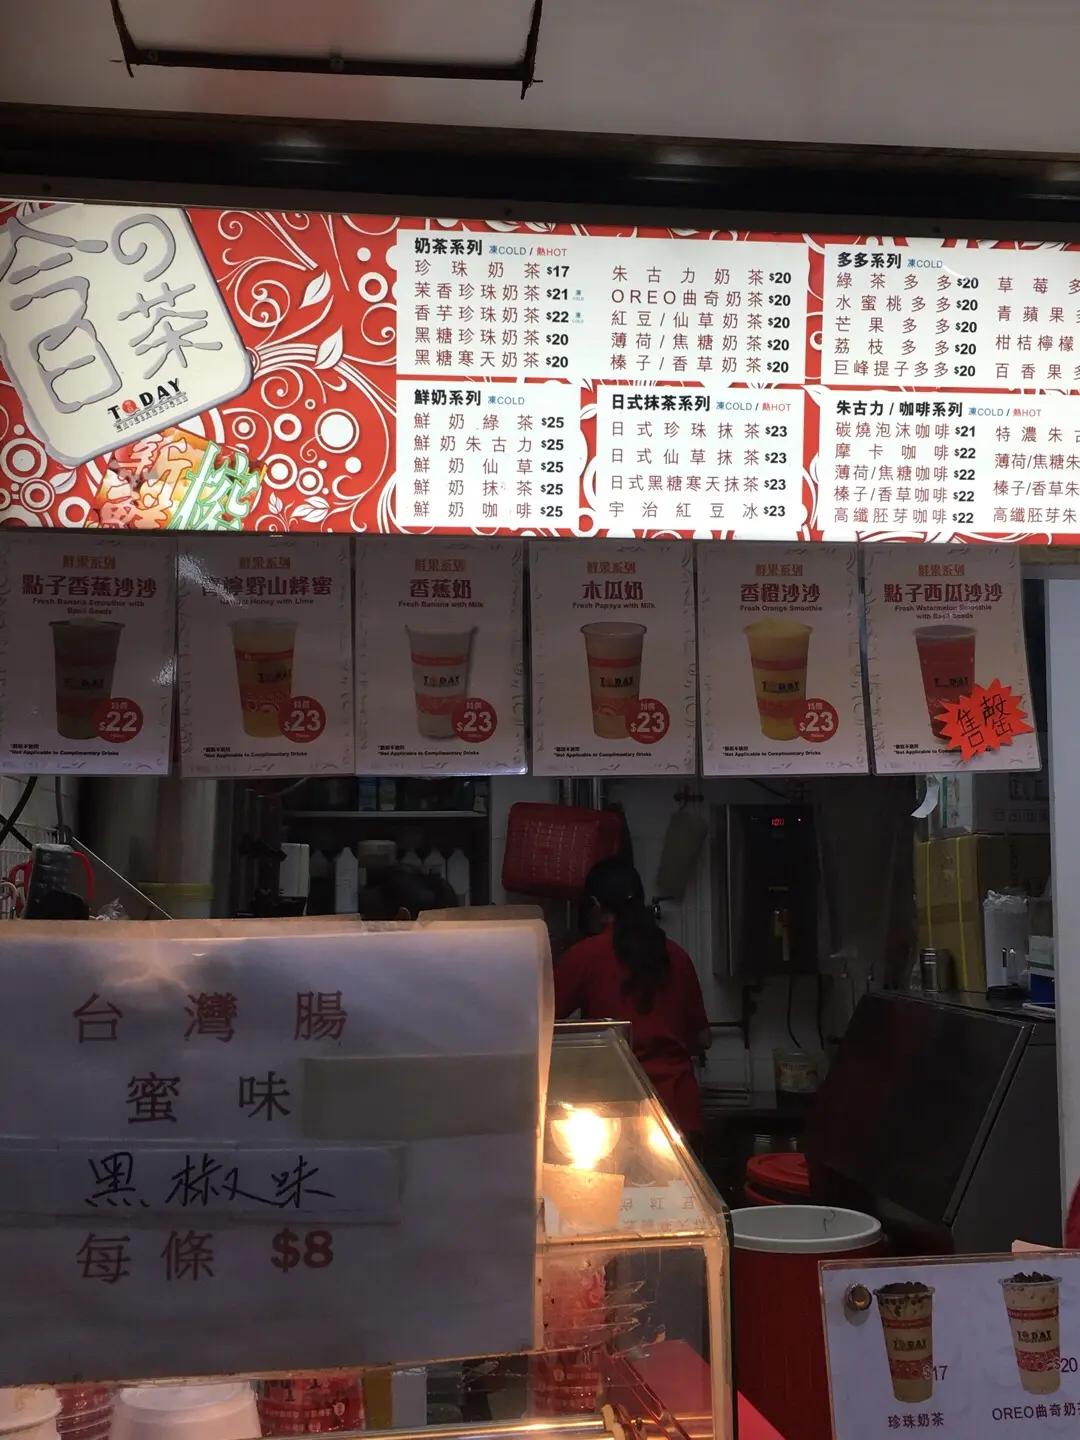 今日の茶
TODAY
新鮮
榨
奶茶系列 凍COLD / 熱HOT
珍珠奶茶 $17
茉香珍珠奶茶 $21 凍 COLD
香芋珍珠奶茶 $22 凍 COLD
黑糖珍珠奶茶 $20
黑糖寒天奶茶 $20
朱古力奶茶 $20
OREO曲奇奶茶 $20
紅豆/仙草奶茶 $20
薄荷/焦糖奶茶 $20
榛子/香草奶茶 $20
多多系列 凍COLD
綠茶多多 $20
水蜜桃多多 $20
芒果多多 $20
荔枝多多 $20
巨峰提子多多 $20
草莓多
青蘋果
柑桔檸檬
百香果多
鮮奶系列 凍COLD
鮮奶綠茶 $25
鮮奶朱古力 $25
鮮奶仙草 $25
鮮奶抹茶 $25
鮮奶咖啡 $25
日式抹茶系列 凍COLD / 熱HOT
日式珍珠抹茶 $23
日式仙草抹茶 $23
日式黑糖寒天抹茶 $23
宇治紅豆冰 $23
朱古力 / 咖啡系列 凍COLD / 熱HOT
碳燒泡沫咖啡 $21
摩卡咖啡 $22
薄荷/焦糖咖啡 $22
榛子/香草咖啡 $22
高纖胚芽咖啡 $22
特濃朱古
薄荷/焦糖朱
榛子/香草朱
高纖胚芽朱
鮮果系列
點子香蕉沙沙
Fresh Banana Smoothie with
Basil Seeds
TODAY
特價
$22
*Not Applicable to Complimentary Drinks
鮮果系列
青檸野山蜂蜜
Natural Honey with Lime
TODAY
特價
$23
*Not Applicable to Complimentary Drinks
鮮果系列
香蕉奶
Fresh Banana with Milk
TODAY
特價
$23
*Not Applicable to Complimentary Drinks
鮮果系列
木瓜奶
Fresh Papaya with Milk
TODAY
特價
$23
*Not Applicable to Complimentary Drinks
鮮果系列
香橙沙沙
Fresh Orange Smoothie
TODAY
特價
$23
*Not Applicable to Complimentary Drinks
鮮果系列
點子西瓜沙沙
Fresh Watermelon Smoothie
with Basil Seeds
TODAY
售罄
*Not Applicable to Complimentary Drinks
台灣腸
蜜味
黑椒味
每條 $8
TODAY
$17
珍珠奶茶
TODAY
$20
OREO曲奇奶